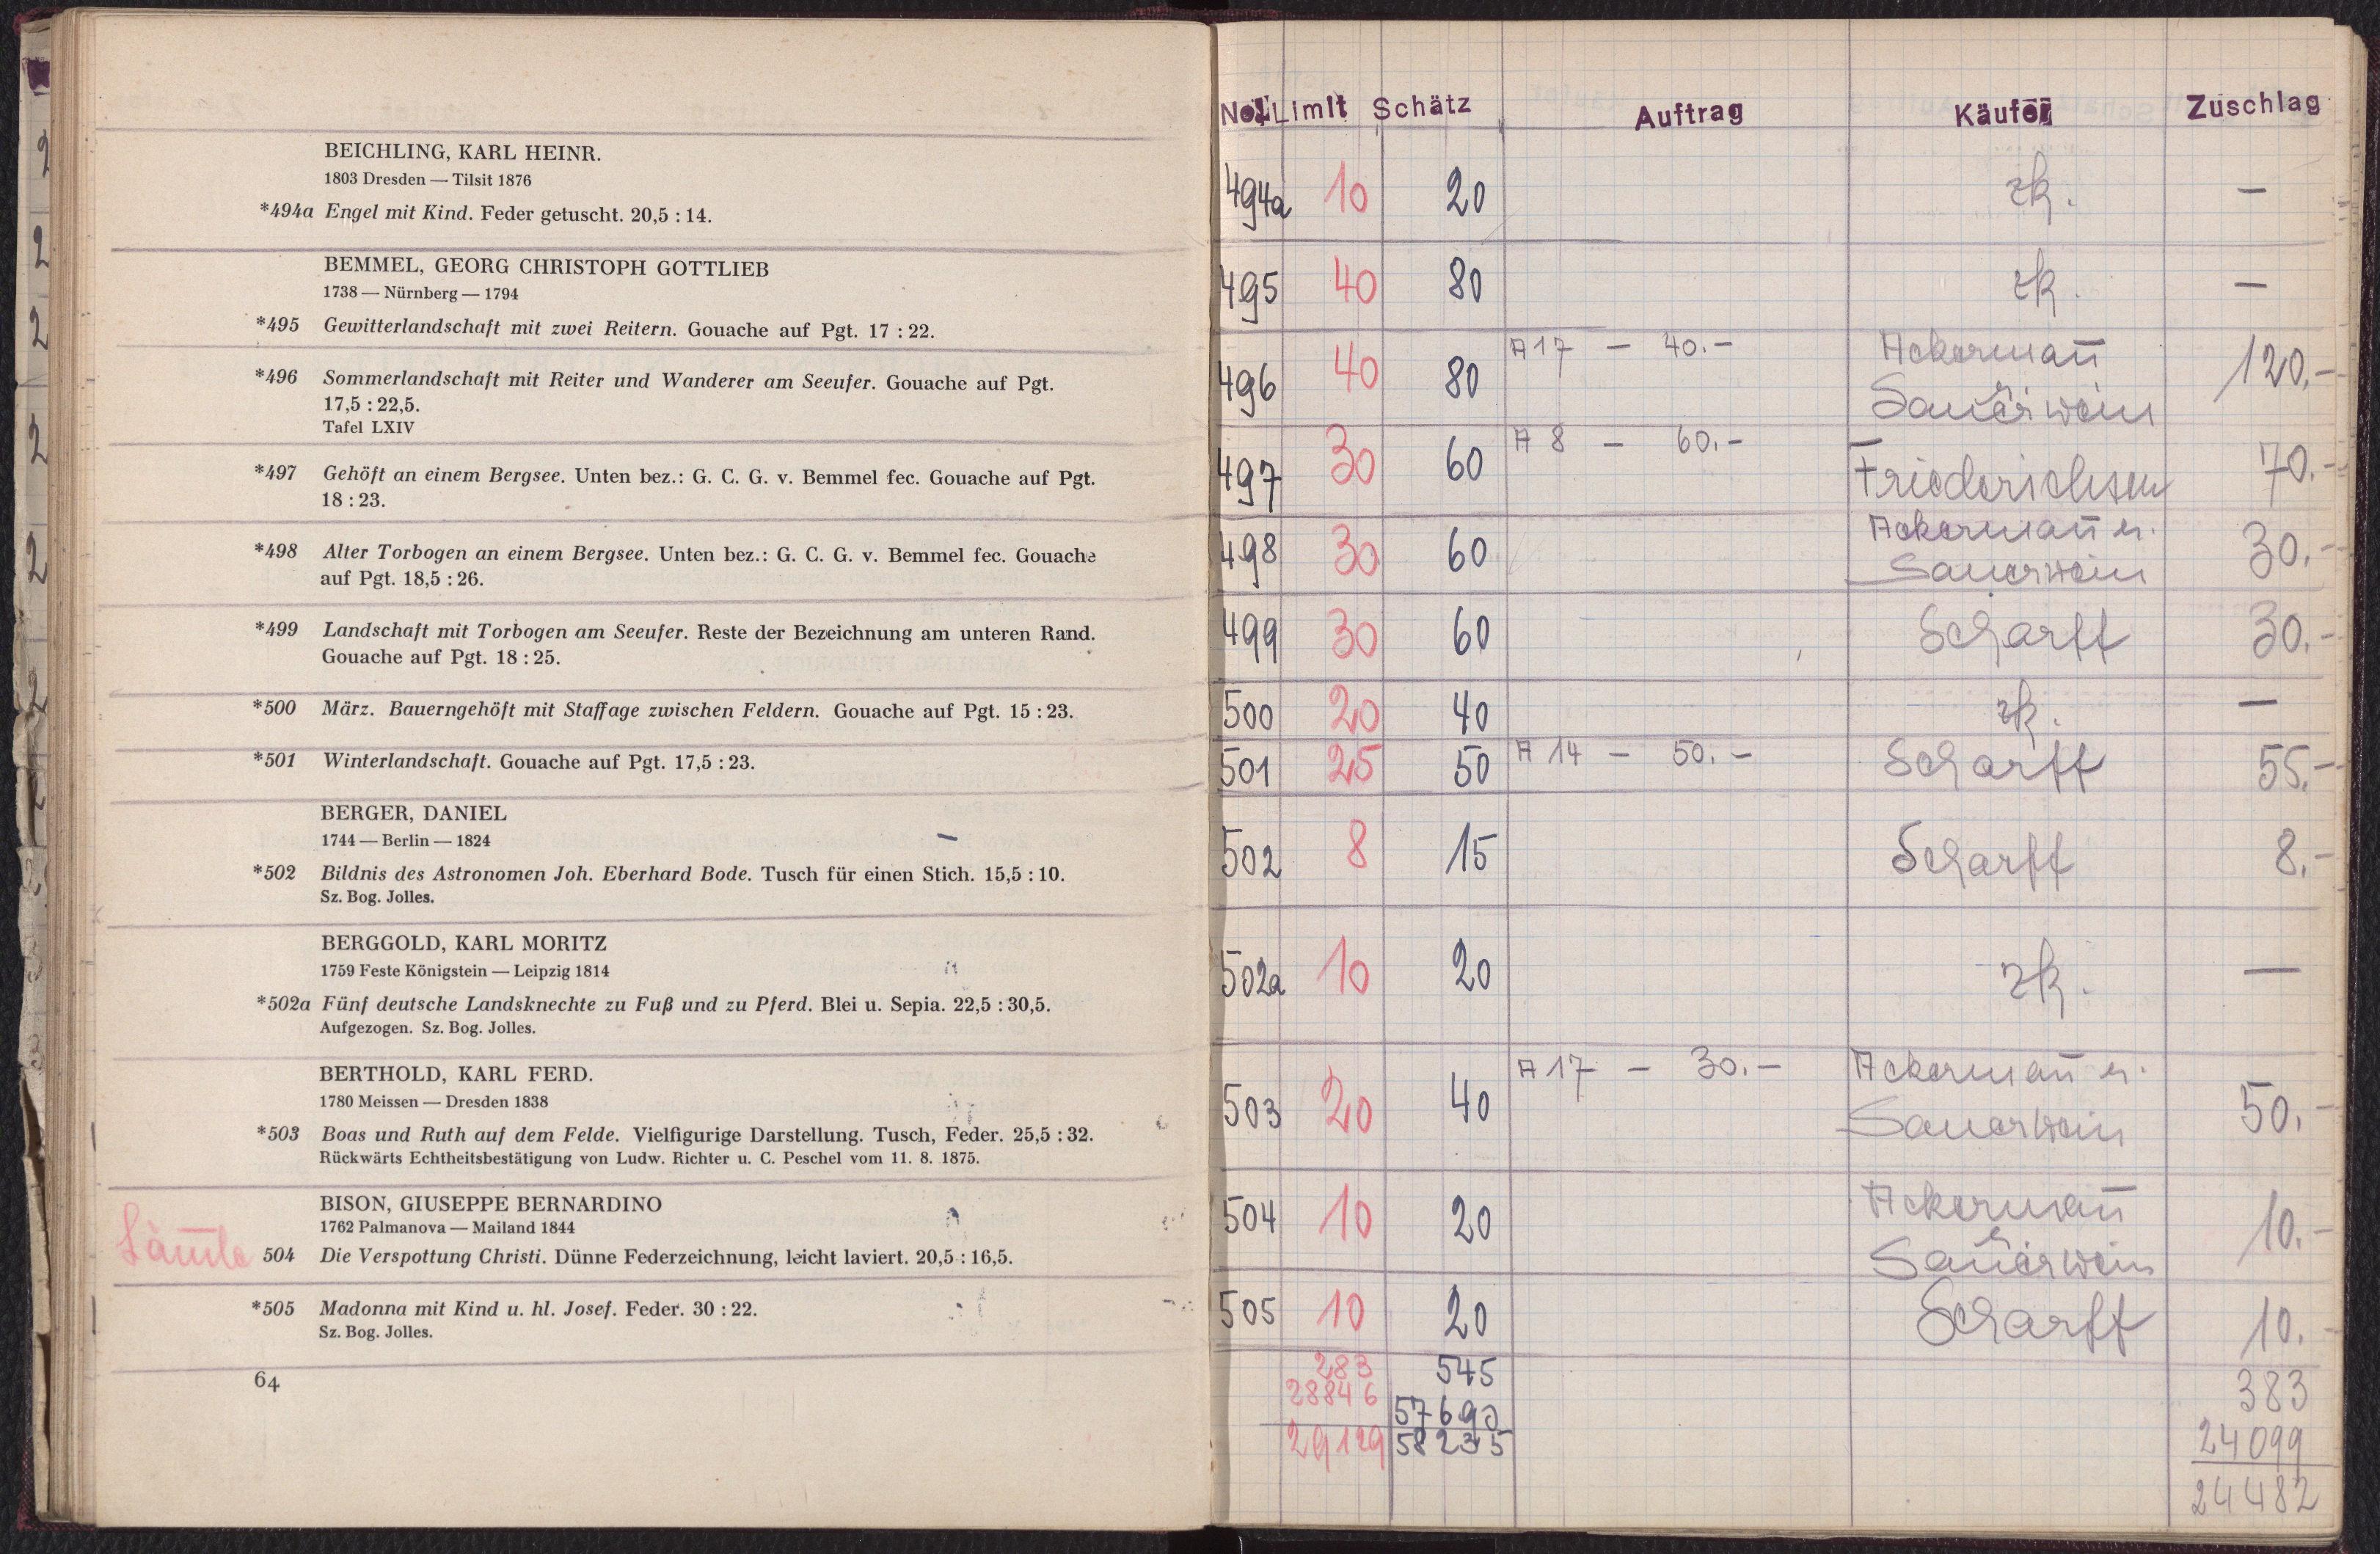 BEICHLING, KARL HEINR.
1803 Dresden — Tilsit 1876
*494a Engel mit Kind. Feder getuscht. 20,5 : 14.
BEMMEL, GEORG CHRISTOPH GOTTLIEB
1738 — Nürnberg — 1794
*495 Gewitterlandschaft mit zwei Reitern. Gouache auf Pgt. 17 : 22.
*496 Sommerlandschaft mit Reiter und Wanderer am Seeufer. Gouache auf Pgt.
17,5 : 22,5.
Tafel LXIV
*497 Gehöft an einem Bergsee. Unten bez.: G. C. G. v. Bemmel fec. Gouache auf Pgt.
18 : 23.
*498 Alter Torbogen an einem Bergsee. Unten bez.: G. C. G. v. Bemmel fec. Gouache
auf Pgt. 18,5 : 26.
*499 Landschaft mit Torbogen am Seeufer. Reste der Bezeichnung am unteren Rand.
Gouache auf Pgt. 18 : 25.
*500 März. Bauerngehöft mit Staffage zwischen Feldern. Gouache auf Pgt. 15 : 23.
*501 Winterlandschaft. Gouache auf Pgt. 17,5 : 23.
BERGER, DANIEL
1744 — Berlin — 1824
*502 Bildnis des Astronomen Joh. Eberhard Bode. Tusch für einen Stich. 15,5 : 10.
Sz. Bog. Jolles.
BERGGOLD, KARL MORITZ
1759 Feste Königstein — Leipzig 1814
*502a Fünf deutsche Landsknechte zu Fuß und zu Pferd. Blei u. Sepia. 22,5 : 30,5.
Aufgezogen. Sz. Bog. Jolles.
BERTHOLD, KARL FERD.
1780 Meissen — Dresden 1838
*503 Boas und Ruth auf dem Felde. Vielfigurige Darstellung. Tusch, Feder. 25,5 : 32.
Rückwärts Echtheitsbestätigung von Ludw. Richter u. C. Peschel vom 11. 8. 1875.
BISON, GIUSEPPE BERNARDINO
1762 Palmanova — Mailand 1844
504 Die Verspottung Christi. Dünne Federzeichnung, leicht laviert. 20,5 : 16,5.
*505 Madonna mit Kind u. hl. Josef. Feder. 30 : 22.
Sz. Bog. Jolles.
64
No. Limit Schätz Auftrag Käufer Zuschlag
494a 10 20 zk. —
495 40 80 zk. —
496 40 80 A 17 — 40.— Ackermañ Sauerwein 120.—
497 30 60 A 8 — 60.— Friederichsen 70.—
498 30 60 Ackermañ u. Sauerwein 30.—
499 30 60 Scharff 30.—
500 20 40 zk. —
501 25 50 A 14 — 50.— Scharff 55.—
502 8 15 Scharff 8.—
502a 10 20 zk. —
503 20 40 A 17 — 30.— Ackermañ u. Sauerwein 50.—
504 10 20 Ackermañ Sauerwein 10.—
505 10 20 Scharff 10.—
283 545 383
28846 57690 24099
29129 58235 24482